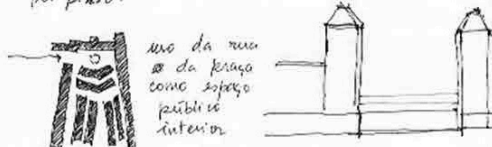 uso da rua
e da praça
como espaço
público
interior